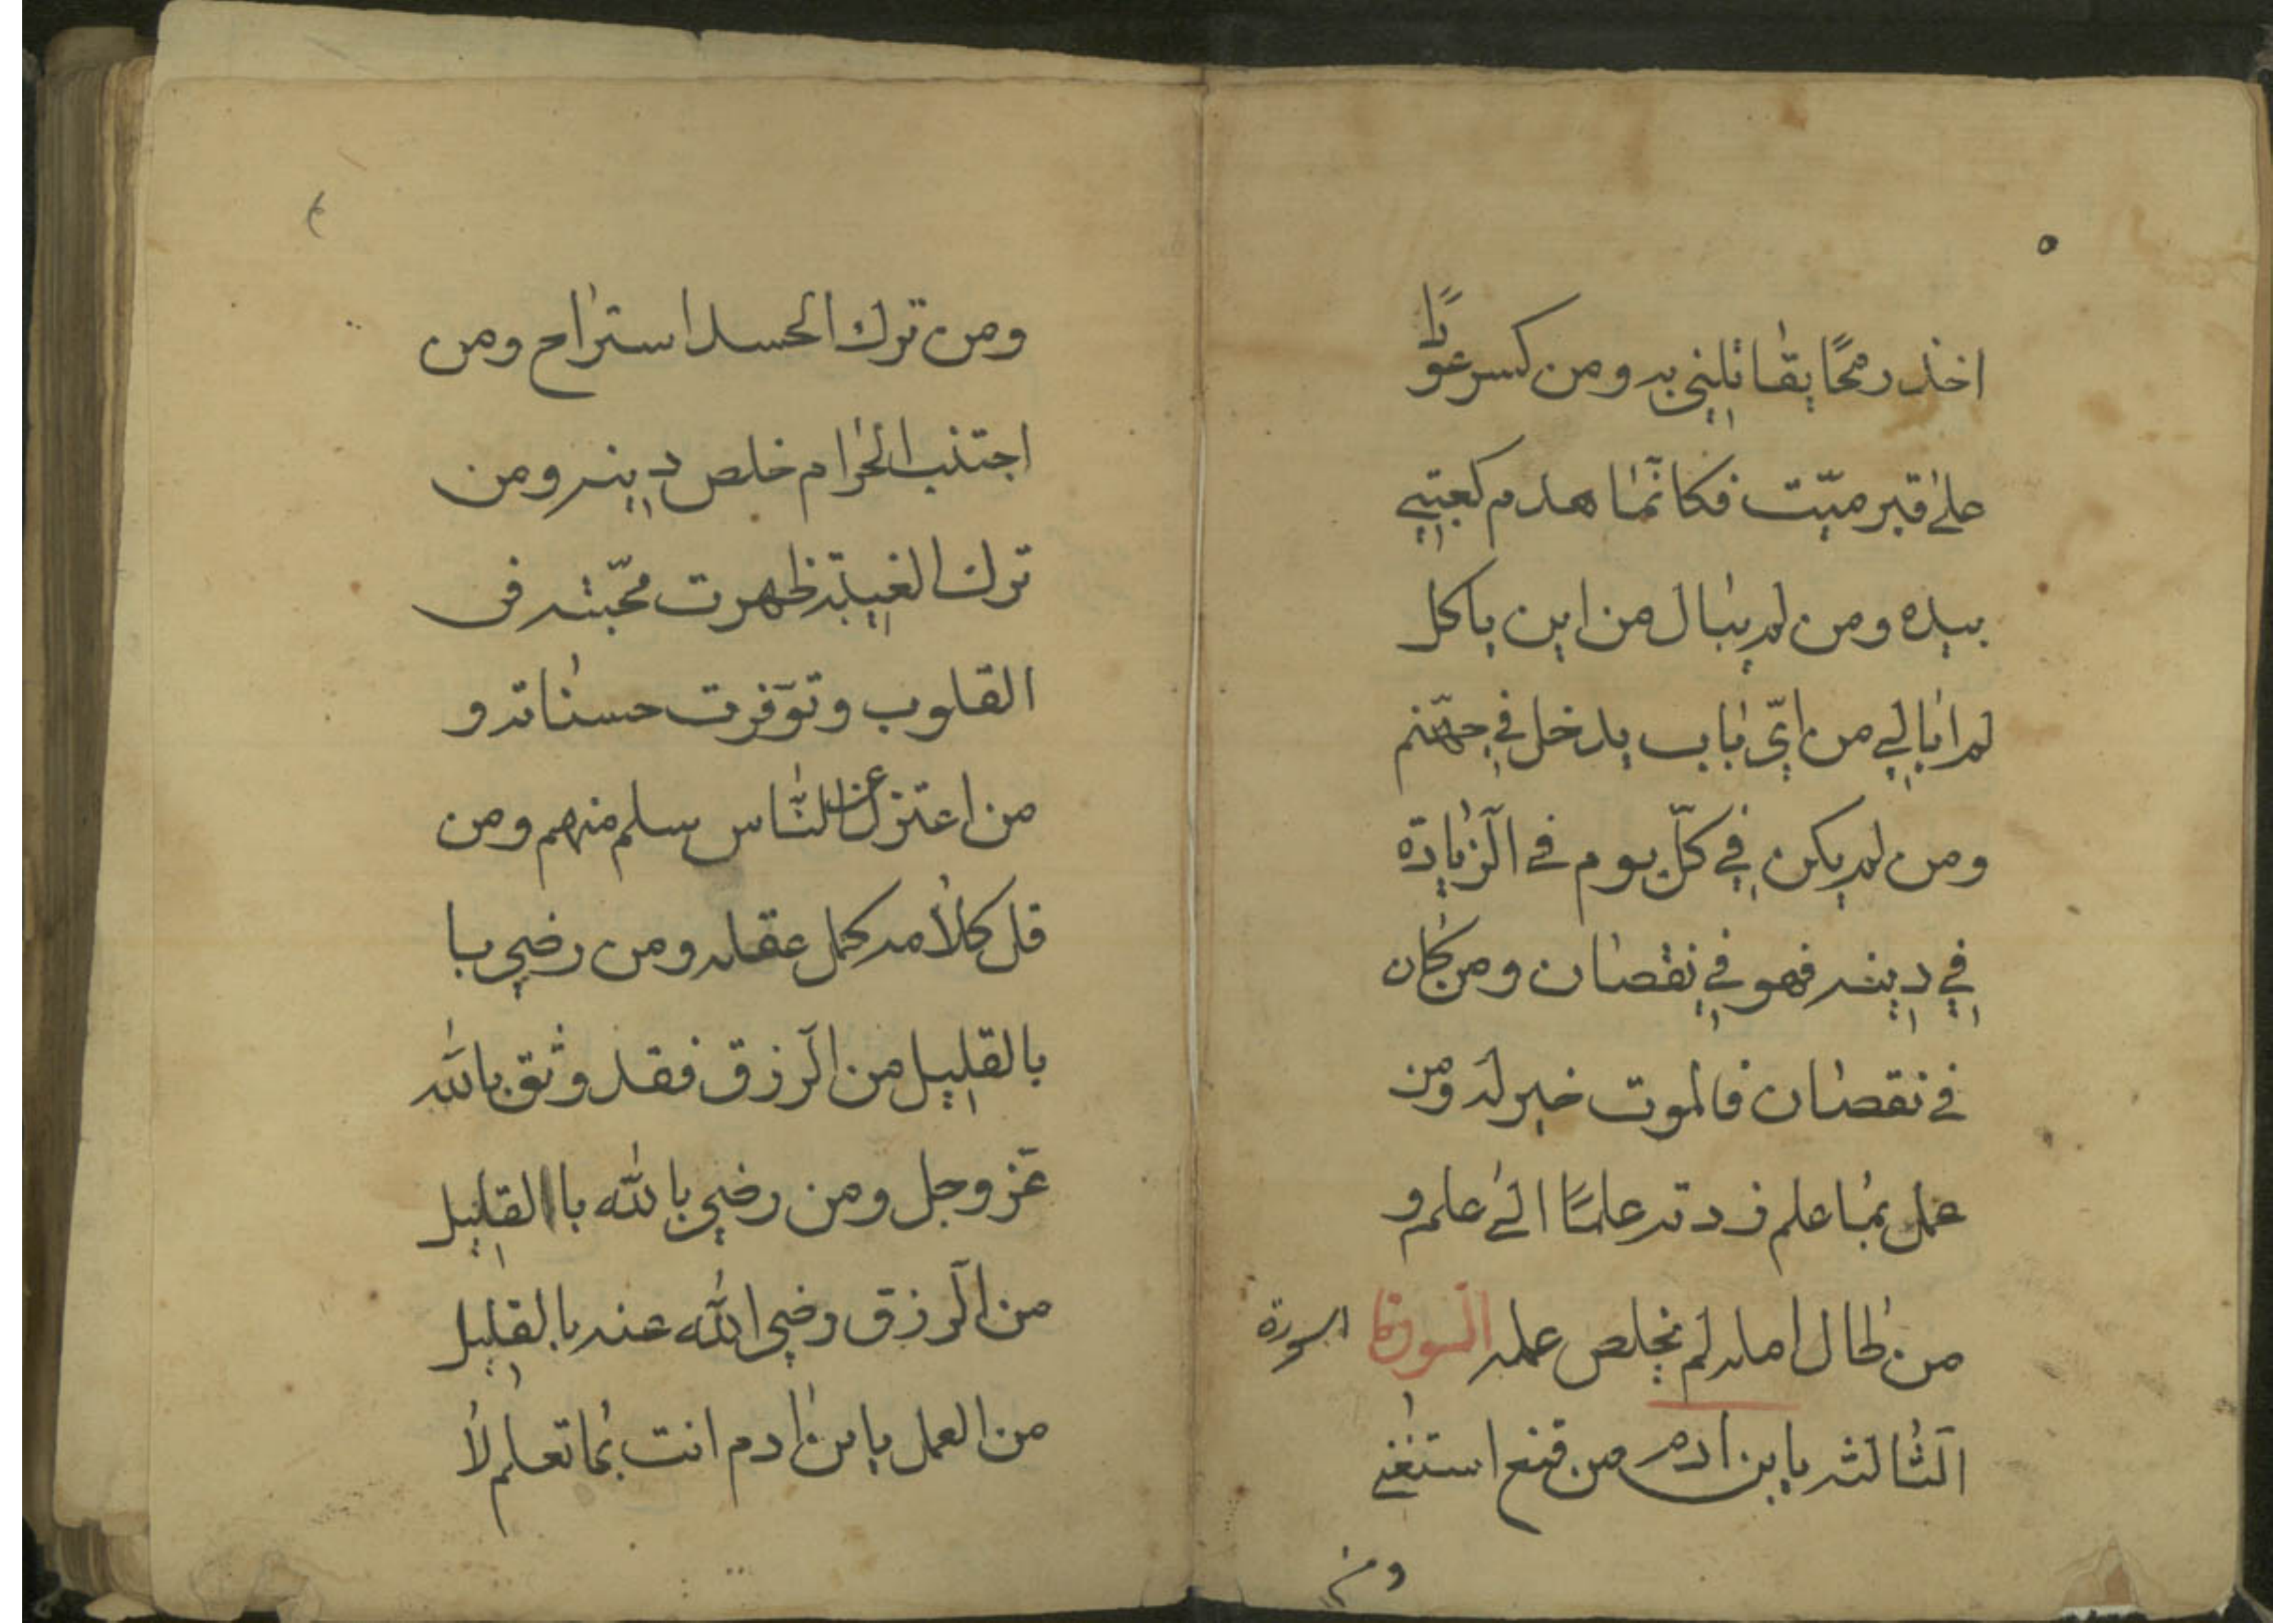 ٥
اخذ رمحًا يقاتلني به ومن كسر عودًا
على قبر ميّت فكانّما هدم كعبتي
بيده ومن لم يبال من اين ياكل
لم ابالي من ايّ باب يدخل في جهنّم
ومن لم يكن في كلّ يوم في الزّيادة
في دينه فهو في نقصان ومن كان
في نقصان فالموت خير له ومن
عمل بما علم زدته علمًا الى علم و
من طال امله لم يخلص عمله السورة
السورة
الثّالثه يا بن ادم من قنع استغنى
ومن
ومن ترك الحسد استراح ومن
اجتنب الحرام خلص دينه ومن
ترك الغيبة ظهرت محبّته في
القلوب وتوّفرت حسناته و
من اعتزل عن النّاس سلم منهم ومن
قل كلامه كمل عقله ومن رضي با
بالقليل من الرّزق فقد وثق بالله
عزّ وجل ومن رضي بالله با القليل
من الرّزق رضي الله عنه بالقليل
من العمل يا بن ادم انت بما تعلم لا